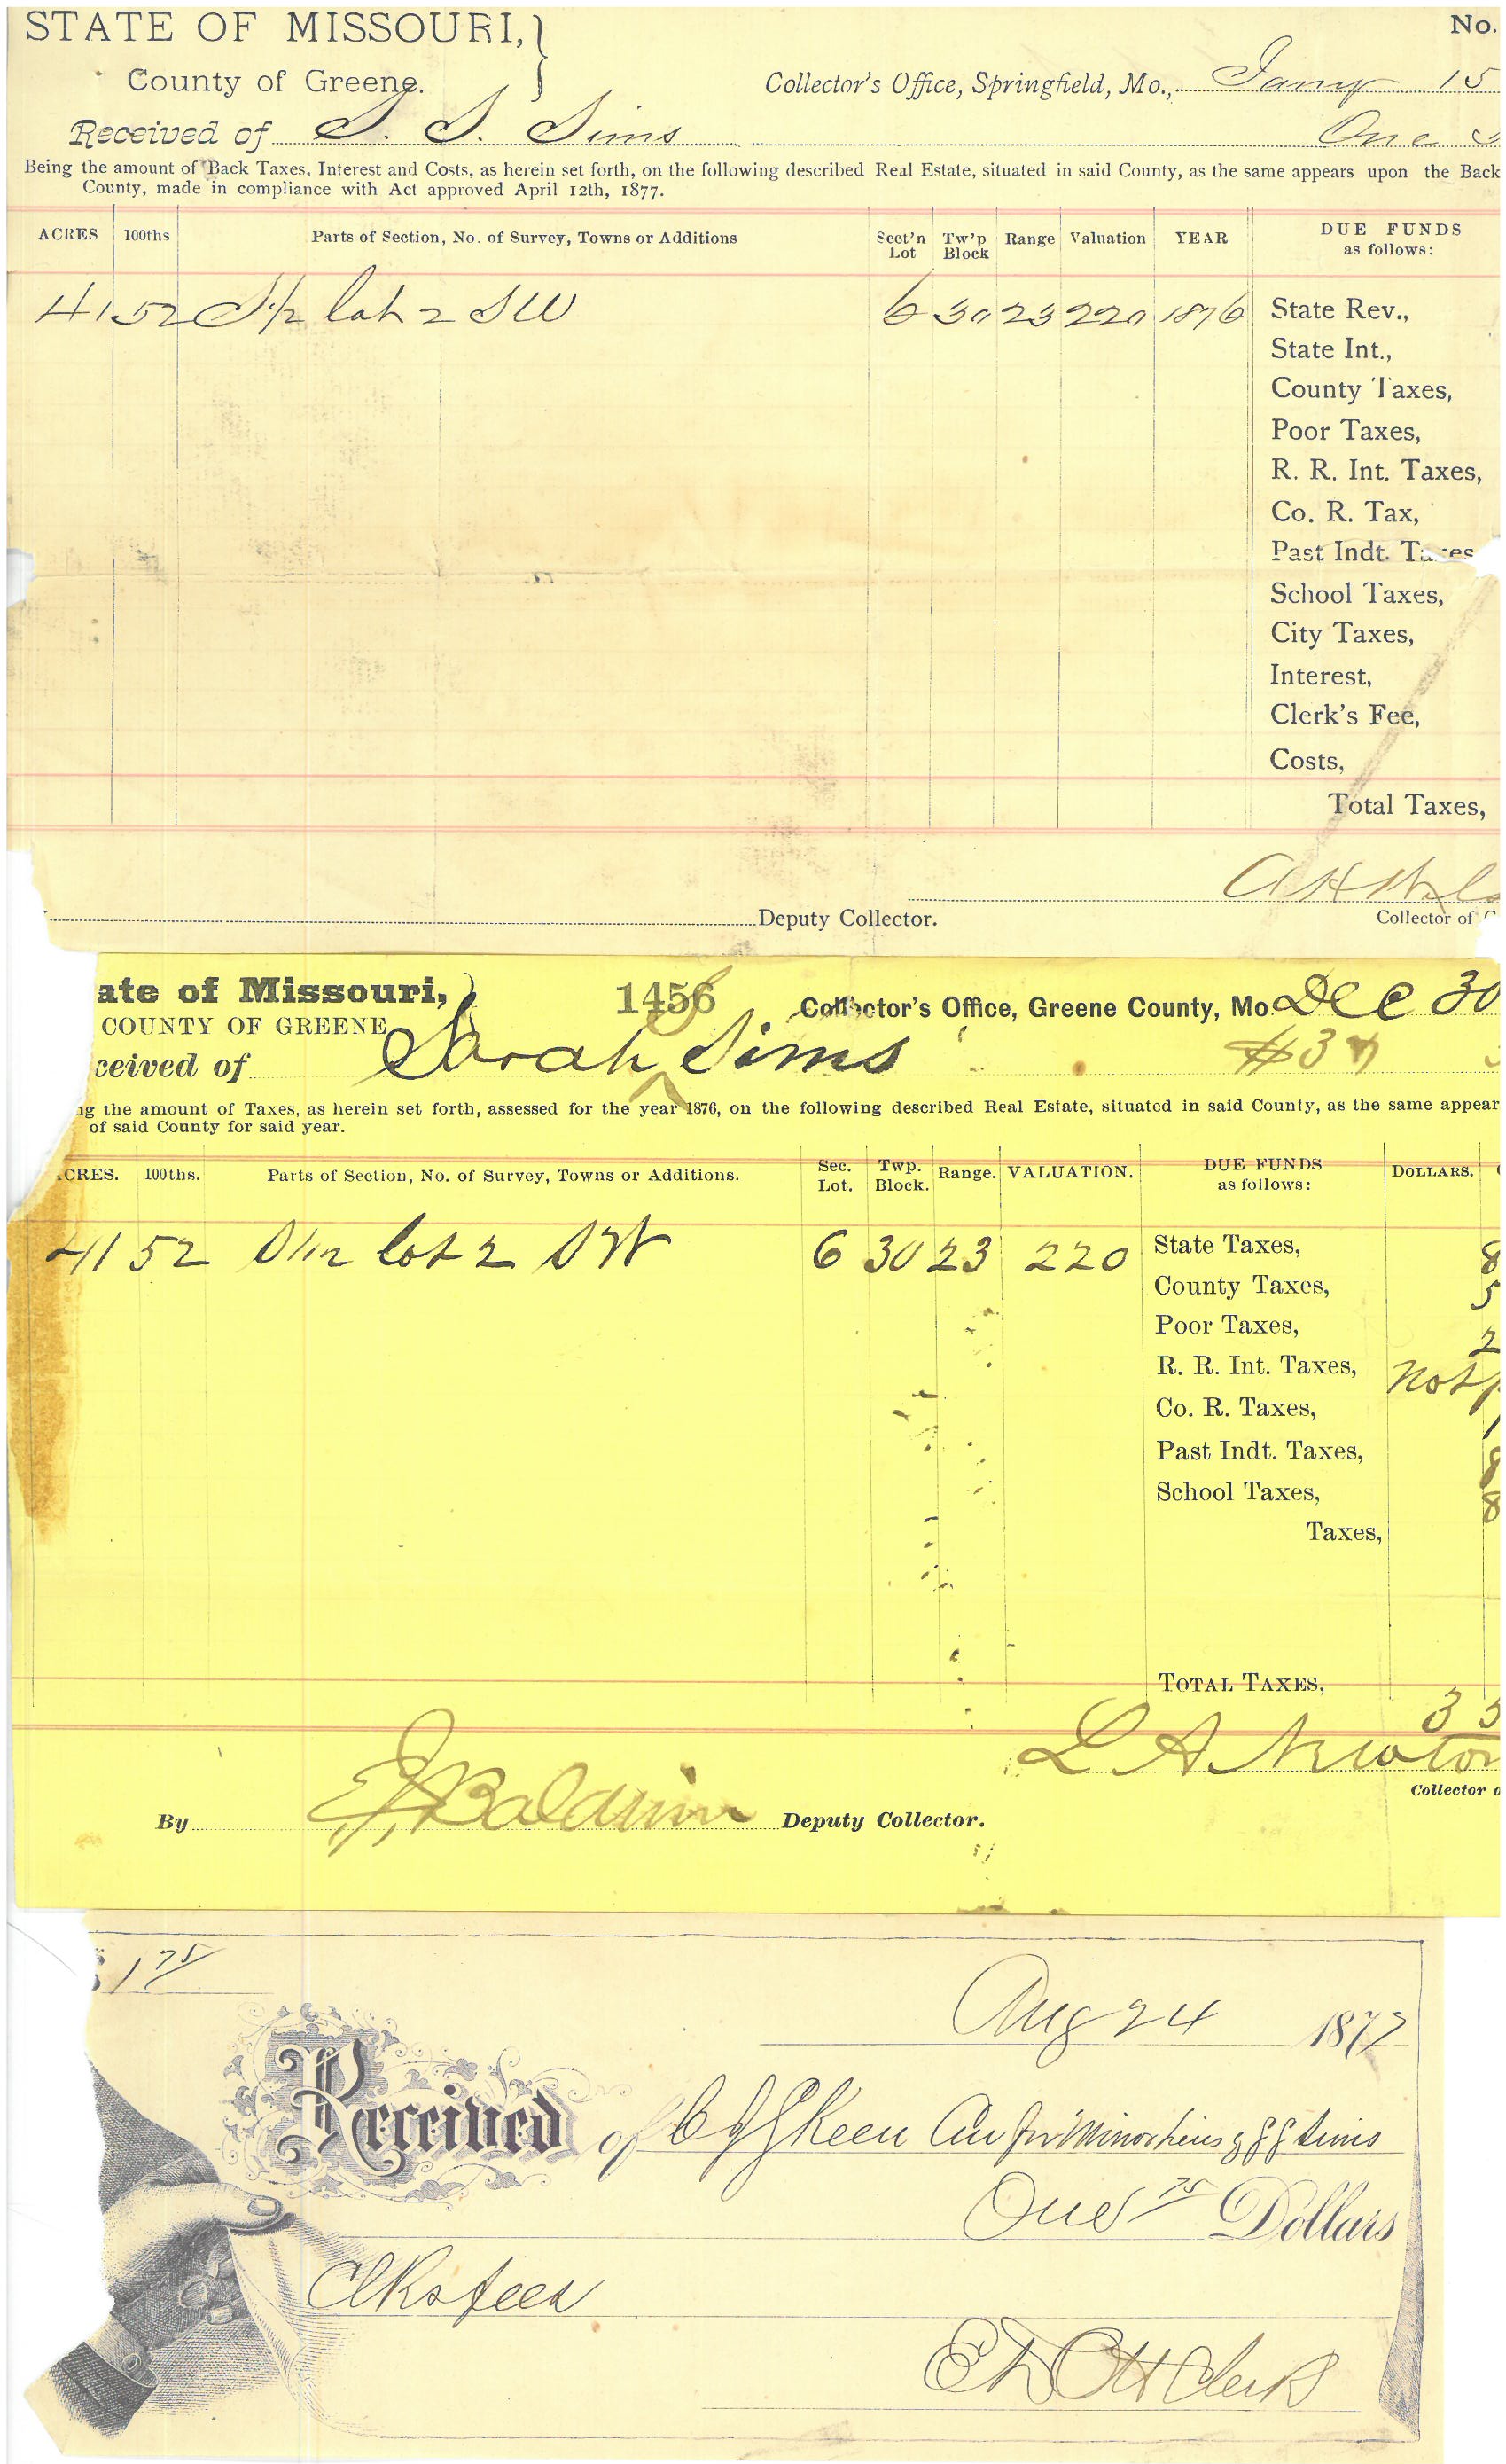 STATE OF MISSOURI,
County of Greene.
No.
Collector's Office, Springfield, Mo., Jany 15
Received of S. S. Sims One
Being the amount of Back Taxes, Interest and Costs, as herein set forth, on the following described Real Estate, situated in said County, as the same appears upon the Back
County, made in compliance with Act approved April 12th, 1877.
ACRES 100ths Parts of Section, No. of Survey, Towns or Additions Sect'n Lot Tw'p Block Range Valuation YEAR DUE FUNDS as follows:
41 52 S1/2 lot 2 SW 6 30 23 220 1876 State Rev.,
State Int.,
County Taxes,
Poor Taxes,
R. R. Int. Taxes,
Co. R. Tax,
Past Indt. Taxes
School Taxes,
City Taxes,
Interest,
Clerk's Fee,
Costs,
Total Taxes,
Deputy Collector.
Collector of
ate of Missouri,
COUNTY OF GREENE
1456 Collector's Office, Greene County, Mo. Dec 30
ceived of Sarah Sims
ng the amount of Taxes, as herein set forth, assessed for the year 1876, on the following described Real Estate, situated in said County, as the same appear
of said County for said year.
CRES. 100ths. Parts of Section, No. of Survey, Towns or Additions. Sec. Lot. Twp. Block. Range. VALUATION. DUE FUNDS as follows: DOLLARS.
41 52 S1/2 lot 2 SW 6 30 23 220 State Taxes, 8
County Taxes, 5
Poor Taxes, 2
R. R. Int. Taxes, Not
Co. R. Taxes,
Past Indt. Taxes, 8
School Taxes, 8
Taxes,
TOTAL TAXES,
3 5
L A Newton
Collector o
By E J Baldwin Deputy Collector.
1 75
Aug 24 1877
Received of C J Skeen Cur for Minor heirs of Sims
One 75 Dollars
Clks fees
Clerk